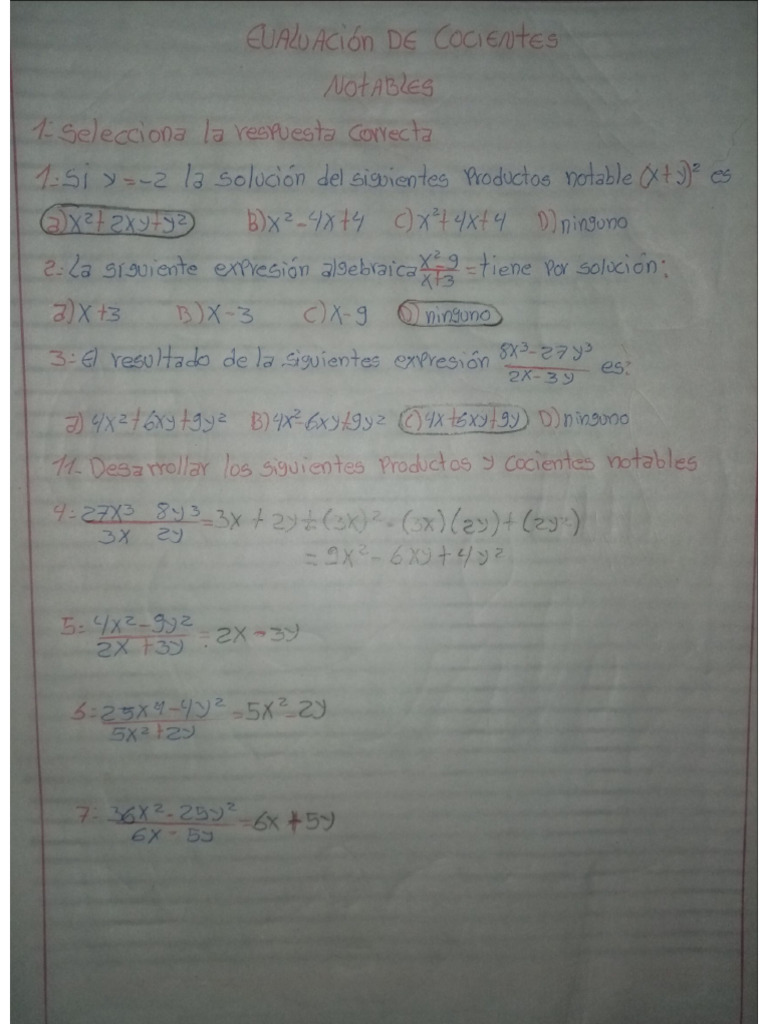 EVALUACIÓN DE COCIENTES
NOTABLES
1- Selecciona la respuesta correcta
1- Si y = -2 la solución del siguientes Productos notable (x+y)² es
a) x²+2xy+y² B) x²-4x+4 C) x²+4x+4 D) ninguno
2- La siguiente expresión algebraica x²-9/x+3 = tiene Por solución:
a) x+3 B) x-3 C) x-9 D) ninguno
3- El resultado de la siguientes expresión 8x³-27y³/2x-3y es:
a) 4x²+6xy+9y² B) 4x²-6xy+9y² C) 4x+6xy+9y D) ninguno
11- Desarrollar los siguientes Productos y cocientes notables
4- 27x³ 8y³/3x 2y = 3x + 2y ÷ (3x)² - (3x)(2y) + (2y²)
= 9x² - 6xy + 4y²
5- 4x²-9y²/2x+3y = 2x - 3y
6- 25x⁴-4y²/5x²+2y = 5x²-2y
7- 36x²-25y²/6x-5y = 6x+5y